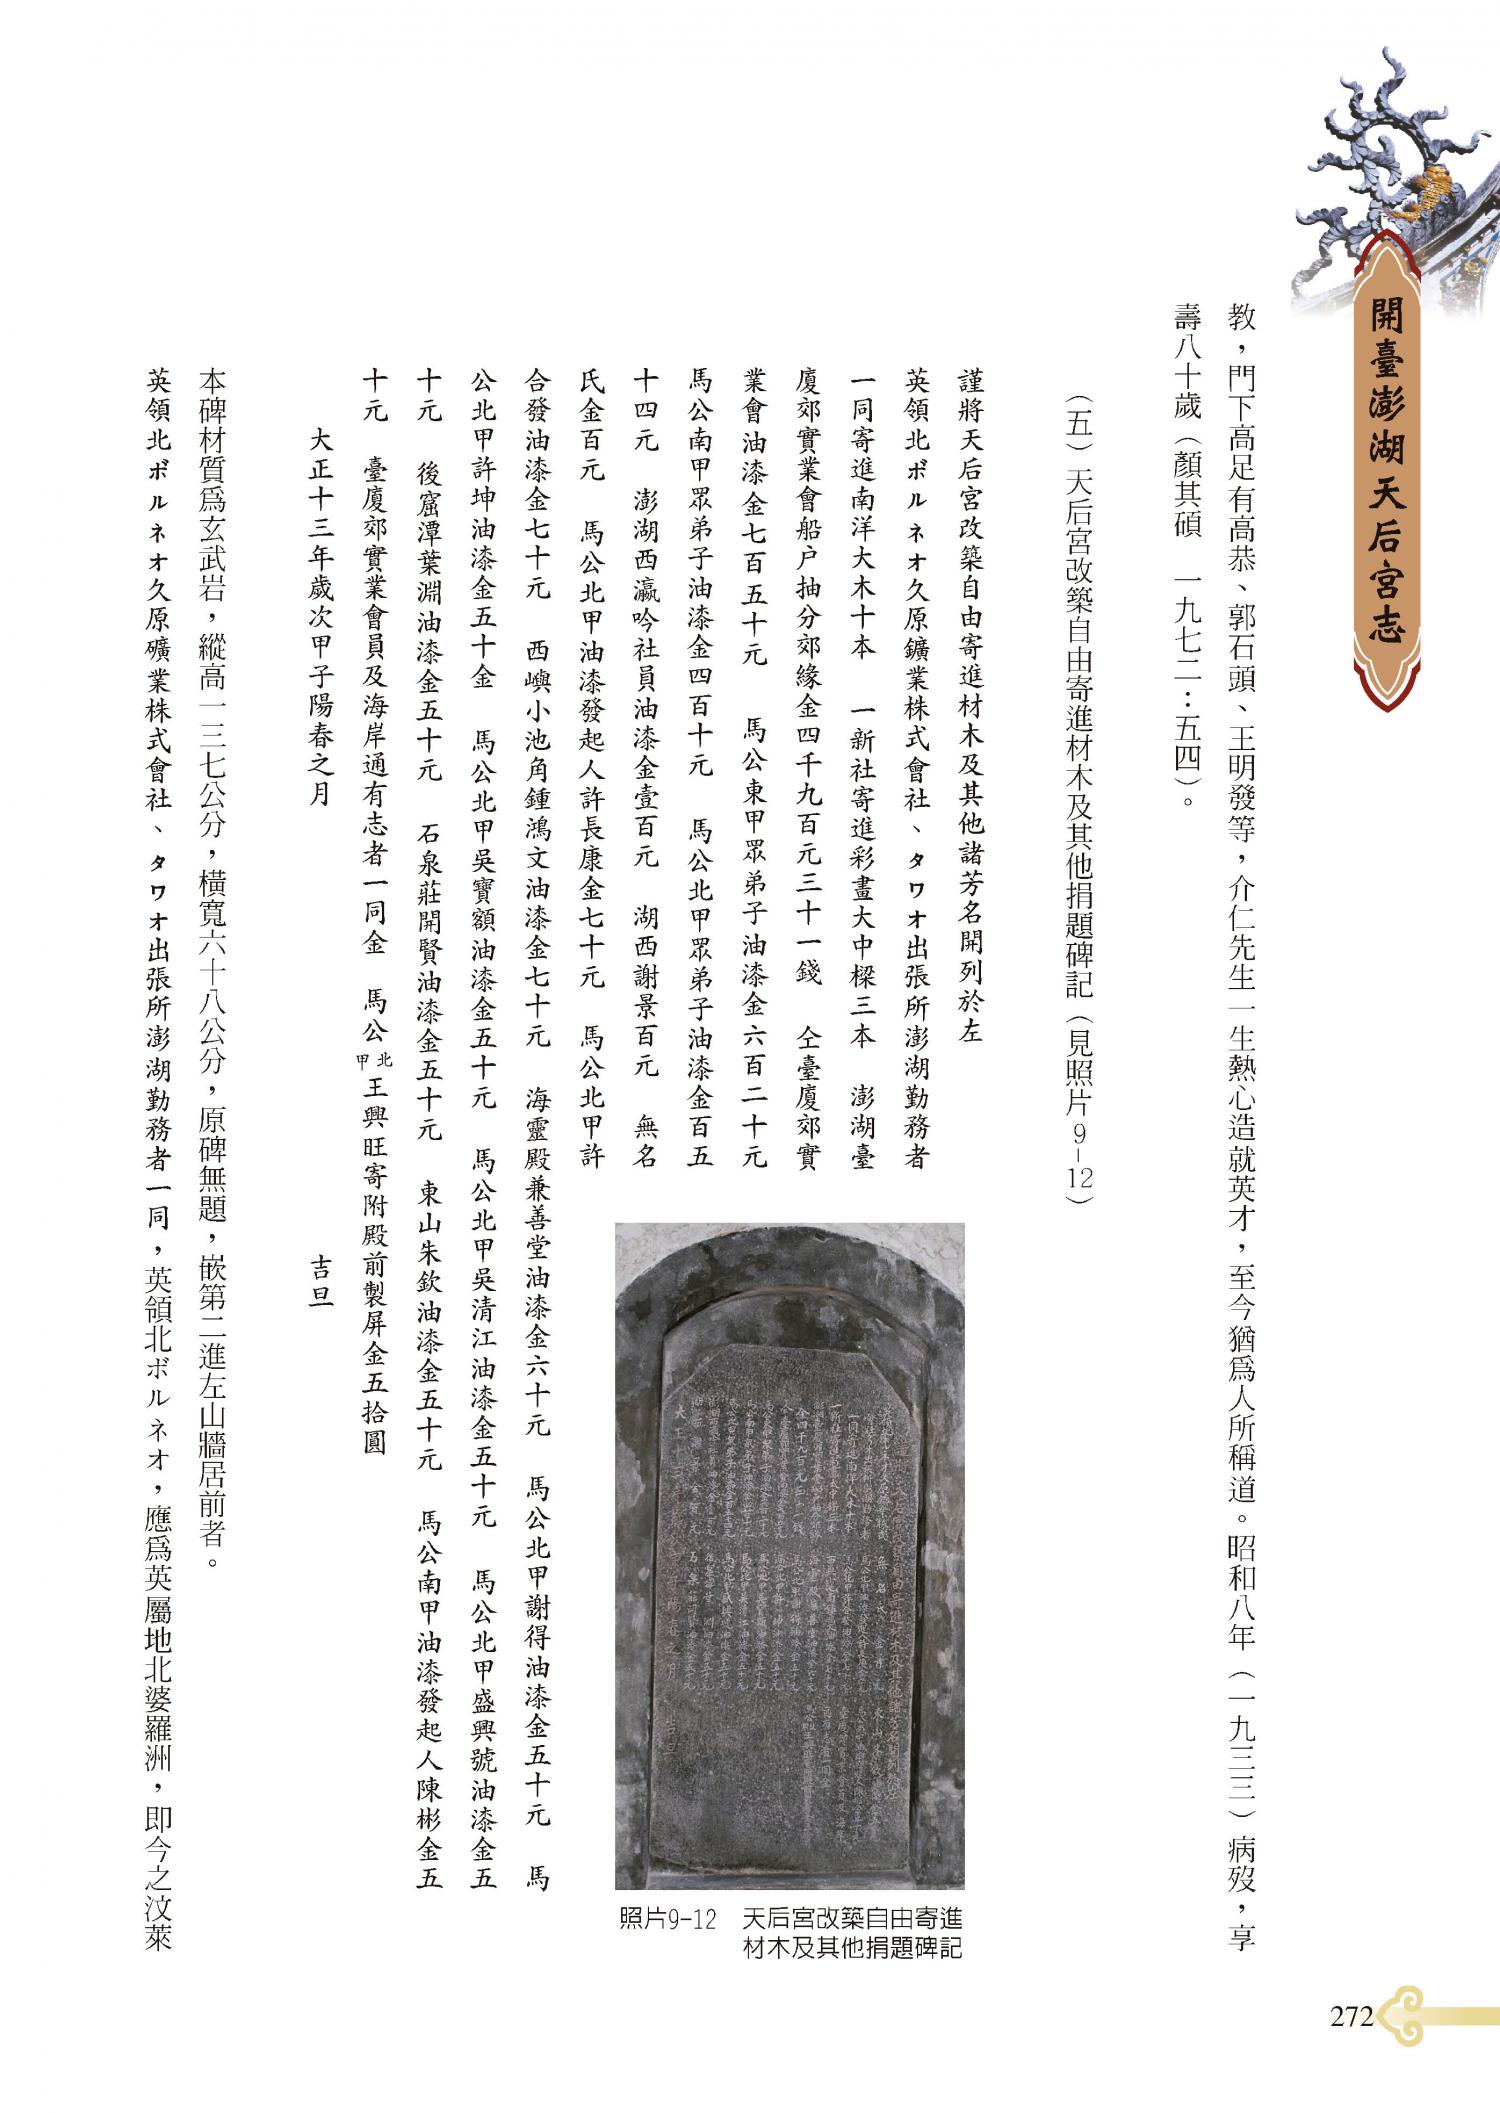 開臺澎湖天后宮志
教，門下高足有高恭、郭石頭、王明發等，介仁先生一生熱心造就英才，至今猶為人所稱道。昭和八年（一九三三）病歿，享
壽八十歲（顏其碩　一九七二：五四）。
（五）天后宮改築自由寄進材木及其他捐題碑記（見照片9-12）
謹將天后宮改築自由寄進材木及其他諸芳名開列於左
英領北ボルネオ久原鑛業株式會社、タワオ出張所澎湖勤務者
一同寄進南洋大木十本　一新社寄進彩畫大中樑三本　澎湖臺
廈郊實業會船户抽分郊緣金四千九百元三十一錢　仝臺廈郊實
業會油漆金七百五十元　馬公東甲眾弟子油漆金六百二十元
馬公南甲眾弟子油漆金四百十元　馬公北甲眾弟子油漆金百五
十四元　澎湖西瀛吟社員油漆金壹百元　湖西謝景百元　無名
氏金百元　馬公北甲油漆發起人許長康金七十元　馬公北甲許
合發油漆金七十元　西嶼小池角鍾鴻文油漆金七十元　海靈殿兼善堂油漆金六十元　馬公北甲謝得油漆金五十元　馬
公北甲許坤油漆金五十金　馬公北甲吳寶額油漆金五十元　馬公北甲吳清江油漆金五十元　馬公北甲盛興號油漆金五
十元　後窟潭葉淵油漆金五十元　石泉莊開賢油漆金五十元　東山朱欽油漆金五十元　馬公南甲油漆發起人陳彬金五
十元　臺廈郊實業會員及海岸通有志者一同金　馬公北甲王興旺寄附殿前製屏金五拾圓
大正十三年歲次甲子陽春之月　吉旦
本碑材質為玄武岩，縱高一三七公分，橫寬六十八公分，原碑無題，嵌第二進左山牆居前者。
英領北ボルネオ久原礦業株式會社、タワオ出張所澎湖勤務者一同，英領北ボルネオ，應為英屬地北婆羅洲，即今之汶萊
照片9-12　天后宮改築自由寄進
材木及其他捐題碑記
272